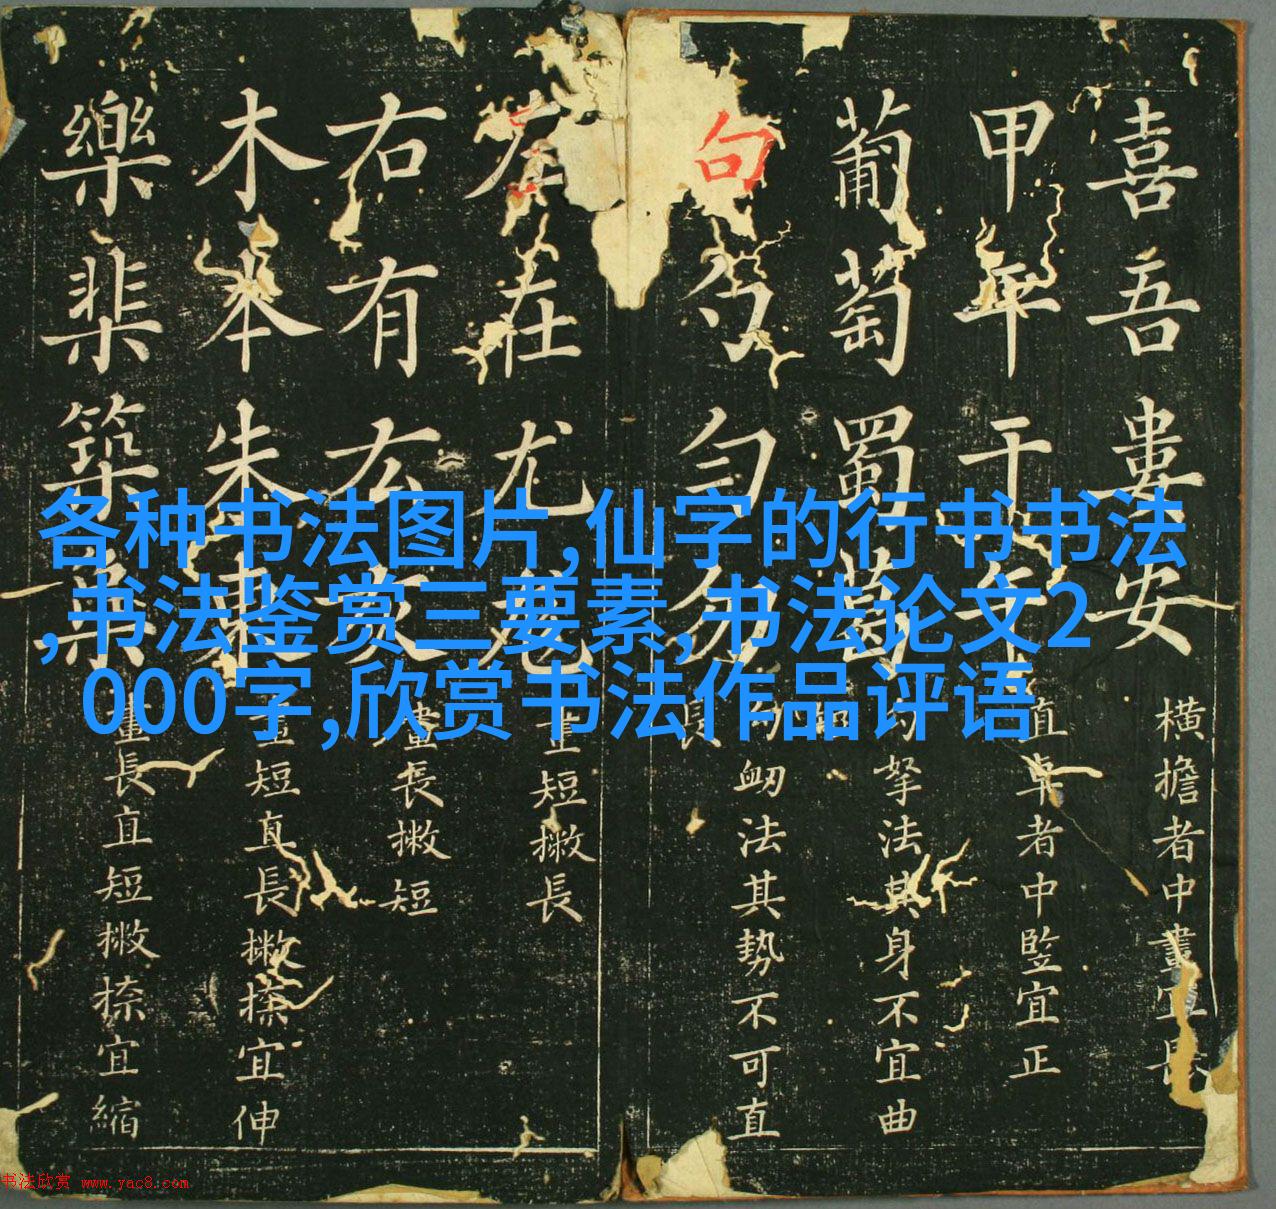 各种书法图片,仙字的行书书法
,书法鉴赏三要素,书法论文2
000字,欣赏书法作品评语
喜吾婁安
横擔者中畫宜
甲平干午
直卓者中監宜正
葡萄蜀葛
勾拏法其身不宜曲
句勺匀勿
勾衂法其勢不可直
左在尤尨
畫短撇長
右有厷灰
畫長撇短
木本朱東
畫短直長撇捺宜伸
樂棐築
畫長直短撇捺宜縮
书法欣赏 www.yac8.com